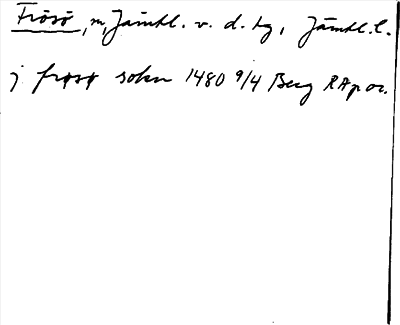 Frösö, m, Jämtl. v. d. tg, Jämtl. l.
j frøsø sokn 1480 9/4 Berg RAp or.